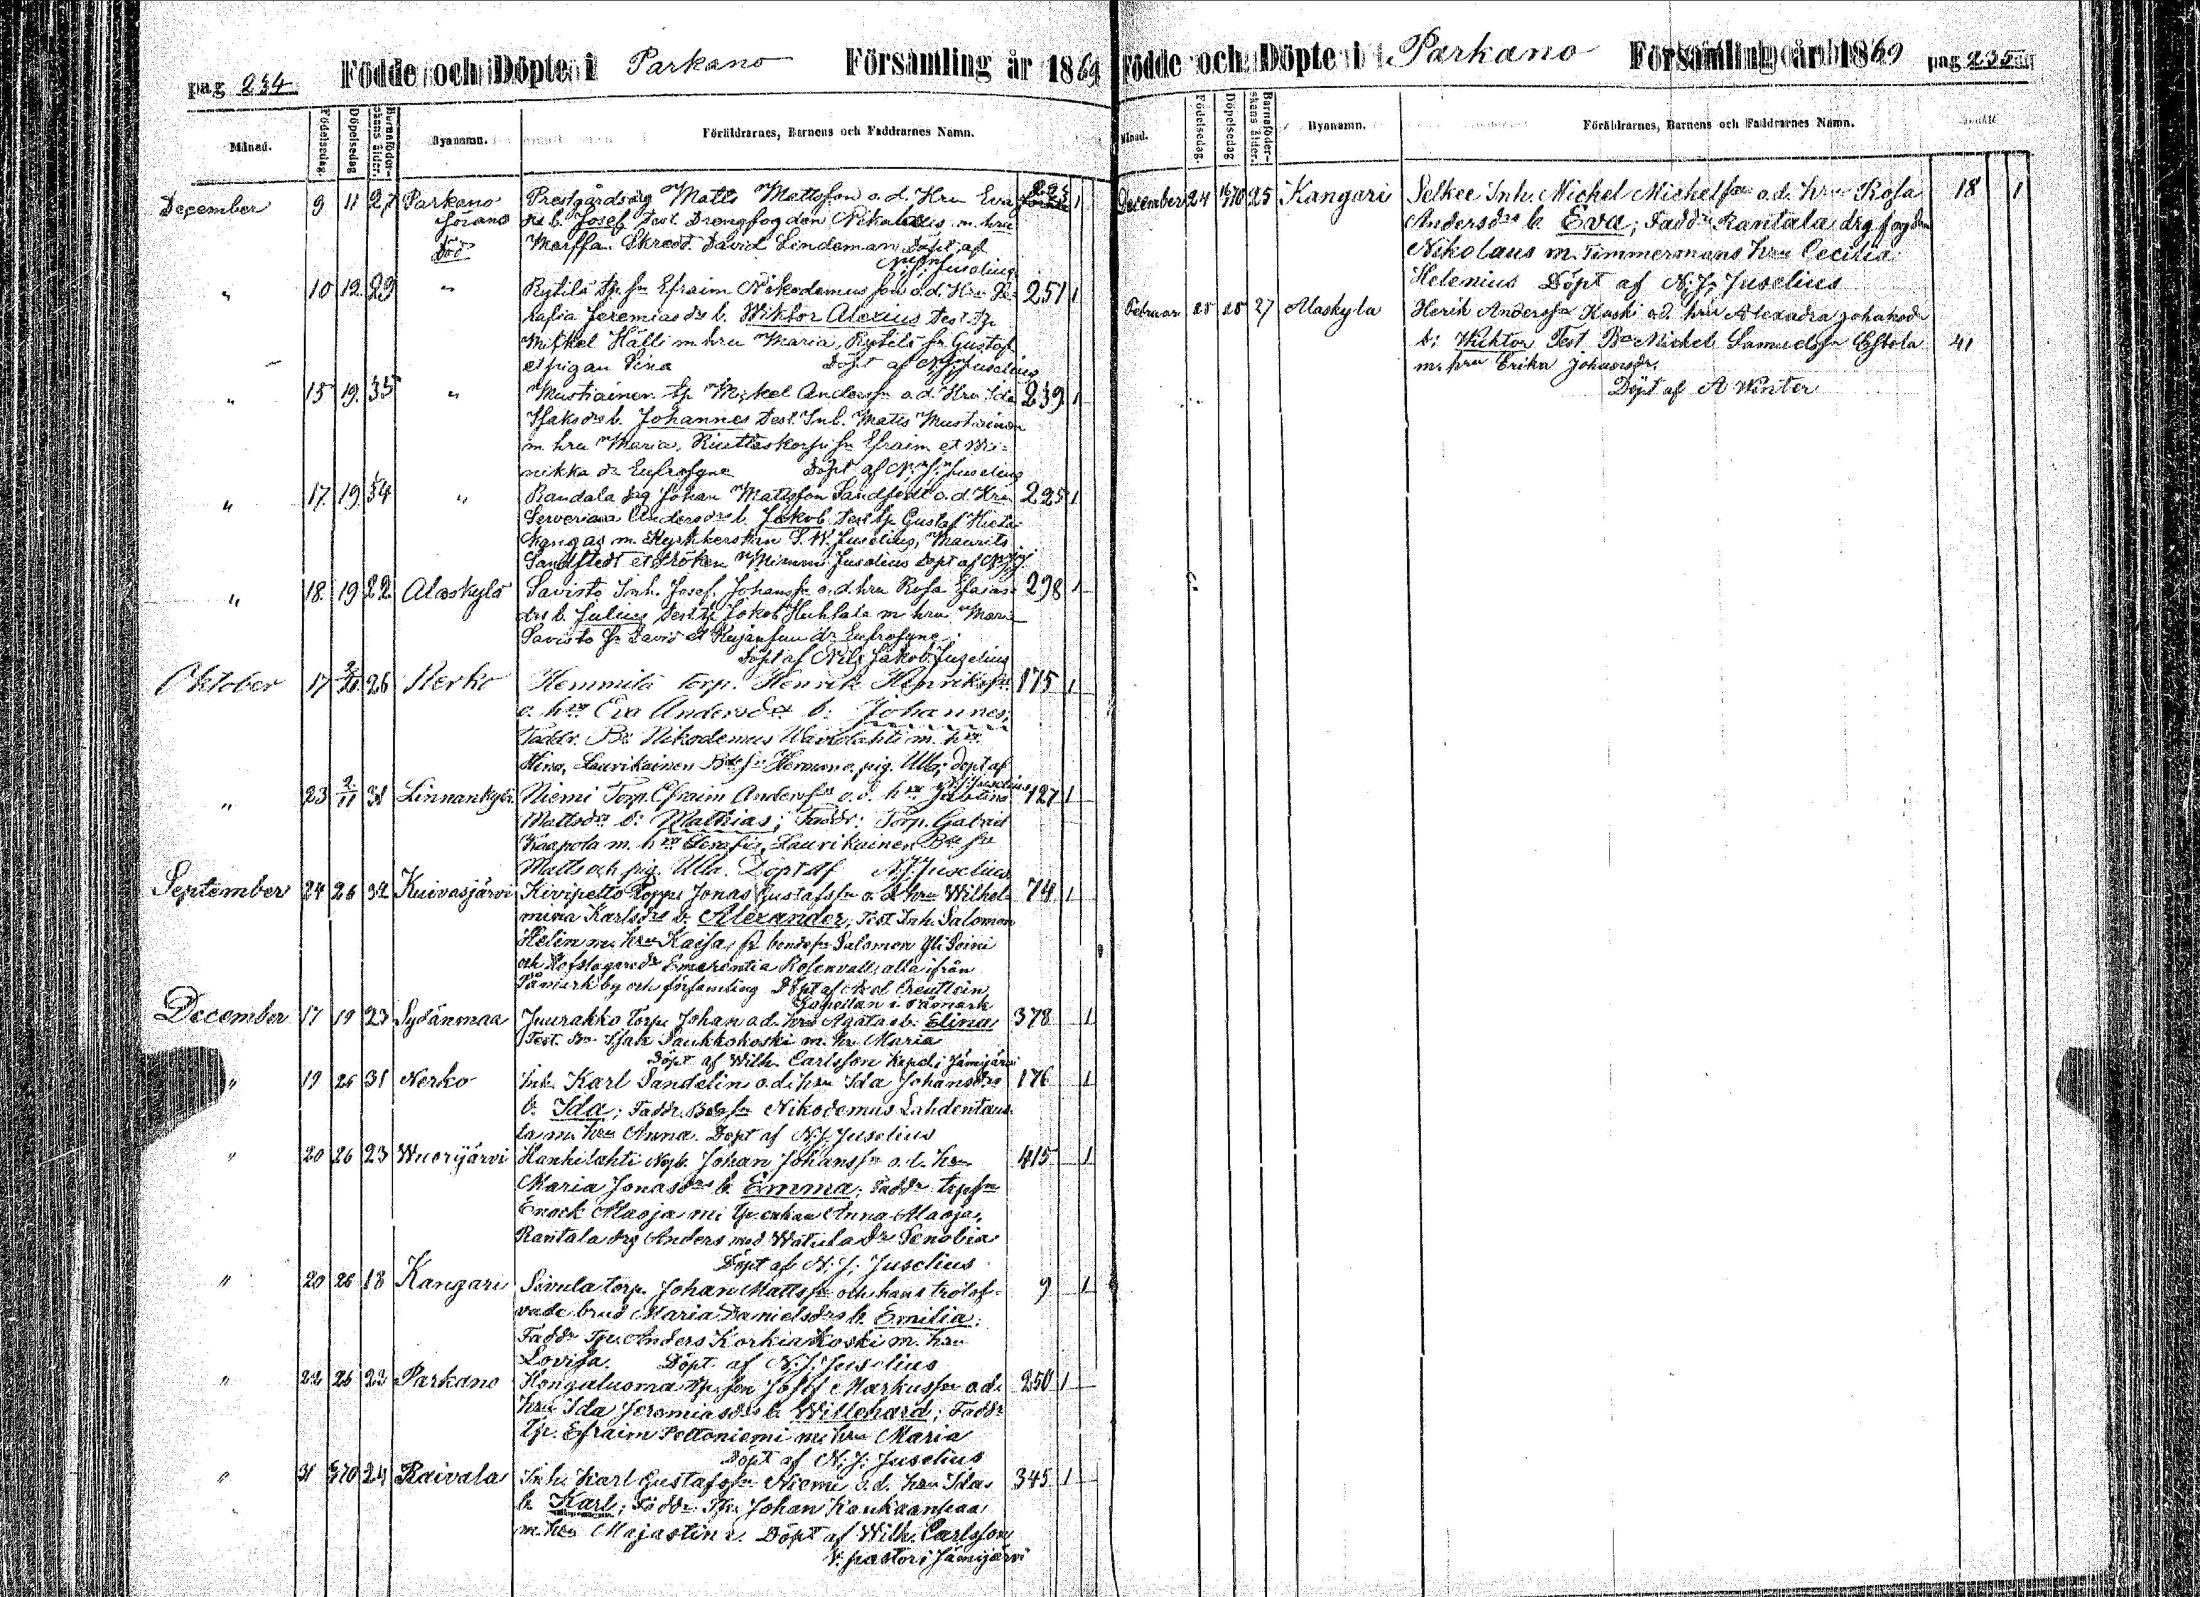 pag 234 Födde och Döpte i Parkano Församling år 1869
Månad. Födelsedag. Döpelsedag Barnaföderskans ålder. Byanamn. Föräldrarnes, Barnens och Faddrarnes Namn.
December 9 11 27 Parkano Prestgårdsdrg Matts Mattsson o. d. Hru Eva 225 1
död b. Josef Test. Drengfogden Nikolaus m. hru
Skredd. David Lindeman Döpt af
N. J. Juselius
" 10 12 29 " Rytilä Efraim Nikodemusson o. d. Hru 251 1
Jeremiasdr b. Wiktor Alexius Test. Tp
Mikkel Hälli m. hru Maria, Rytilä Sn Gustaf
et pigan Döpt af N. J. Juselius
" 15 19 35 " Mustiainen tp Mickel Andersson o. d. Hru Ida 239 1
Isaksdr b. Johannes Test. Inh. Matts Mustiainen
m. hru Maria, Sn Efraim et
dr Eufrosyne Döpt af N. J. Juselius
" 17 19 34 " Randala drg Johan Mattsson Sandstedt o. d. Hru 225 1
Serveriana Andersdr b. Jakob Test tp Gustaf
m. Kyrkherskan S. W. Juselius, Maurits
Sandstedt et Fröken Mimmi Juselius Döpt af N. J. J.
" 18 19 22 Alaskylä Savisto Inh. Josef Johanssn o. d. hru Rosa Esaias 298 1
drs b. Julius Test. tp Jakob Huhtala m hru Maria
Savisto sn David et dr Eufrosyne
Döpt af Nils Jakob Juzelius
Oktober 17 26 Nerko Hemmilä torp. Henrik Henrikssn 175 1
o. hru Eva Andersdr b: Johannes;
Faddr. Bn Nikodemus m. hru
Laurikainen Herman o. pig. Ulla; döpt af
N. J. Juselius
" 23 2/11 31 Linnankylä Niemi Torp. Efraim Anderssn o. d. hru 127 1
Mattsdr b: Mathias; Faddr: Torp. Gabriel
Kaapola m. hru Serafia, Laurikainen Bde sn
Matts och pig. Ulla. Döpt af N. J. Juselius
September 24 26 32 Kuivasjärvi Kivipelto torpe Jonas Gustafssn o. d. hru Wilhel 74 1
mina Karlsdr b. Alexander, Test Inh. Salomon
Helin m. hru Kaisa, bondesn Salomon Yli Soini
och Emerentia Rosenvall, alla ifrån
Påmark by och församling Döpt af Creutlein
Kapellan i Påmark
December 17 19 23 Sydänmaa Juurakko torp. Johan o. d. hru Agata b. Elina 378 1
Test. Bn Isak Saukkokoski m. hr Maria
Döpt af Wilh. Carlsson Kapel. i Jämijärvi
" 19 26 31 Nerko Inh. Karl Sandelin o. d. hru Ida Johansdr 176 1
b. Ida; Faddr. Nikodemus Lahdentaus
ta m. hru Anna. Döpt af N. J. Juselius
" 20 26 23 Wuorijärvi Hanhilahti Johan Johanssn o. d. hru 415 1
Maria Jonasdr b. Emma; Faddr torpsn
Enock Alaoja m. enkan Anna Alaoja,
Rantala drg Anders med Watula dr Senobia
Döpt af N. J. Juselius
" 20 26 18 Kangari Sivula torp. Johan Mattssn och hans trolof- 9 1
vade brud Maria Danielsdr b. Emilia;
Faddr Tp. Anders Korkiakoski m. hru
Lovisa. Döpt af N. J. Juselius
" 22 26 23 Parkano Hongaluoma tp. son Josef Markussn o. d. 250 1
hru Ida Jeremiasdr b. Willehard; Faddr
Tp. Efraim Peltoniemi m. hru Maria
Döpt af N. J. Juselius
" 31 24 Raivala Inh. Karl Gustafssn Niemi o. d. hru Ida 345 1
b. Karl; Faddr Tp. Johan Koukaanhaa
m. hru Majastina. Döpt af Wilh. Carlsson
v. pastor i Jämijärvi
Födde och Döpte i Parkano Församling år 1869 pag 235
Månad. Födelsedag. Döpelsedag Barnaföderskans ålder. Byanamn. Föräldrarnes, Barnens och Faddrarnes Namn.
December 24 25 Kangari Selkee Inh. Michel Michelssn o. d. hru Rosa 18 1
Andersdr b. Eva; Faddr Rantala drg fogden
Nikolaus m. Timmermans hru Cecilia
Helenius Döpt af N. J. Juselius
Februari 25 25 27 Alaskylä Henrik Anderssn Kaski o. d. hru Alexadra Johansdr
b: Wiktor Test Bn Michel Samuelssn Estola 41
m. hru Erika Johansdr.
Döpt af A Winter